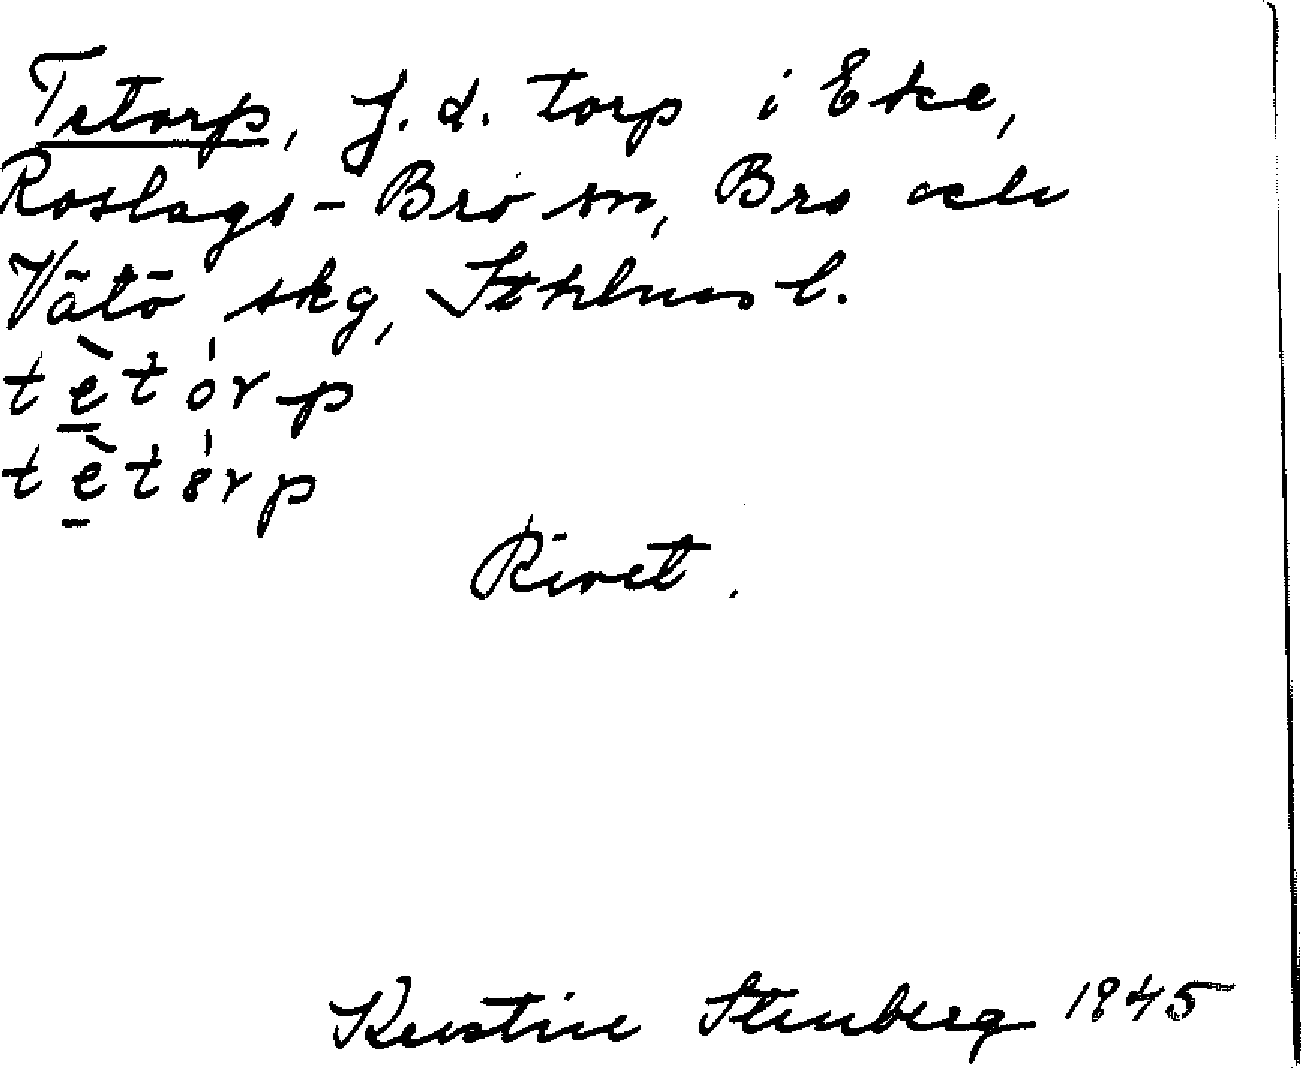 Tetorp, f.d. torp i Eke,
Roslags-Bro sn, Bro och
Vätö skg, Sthlms l.
tètórp
tètórp
Rivet.
Kerstin Stenberg 1945